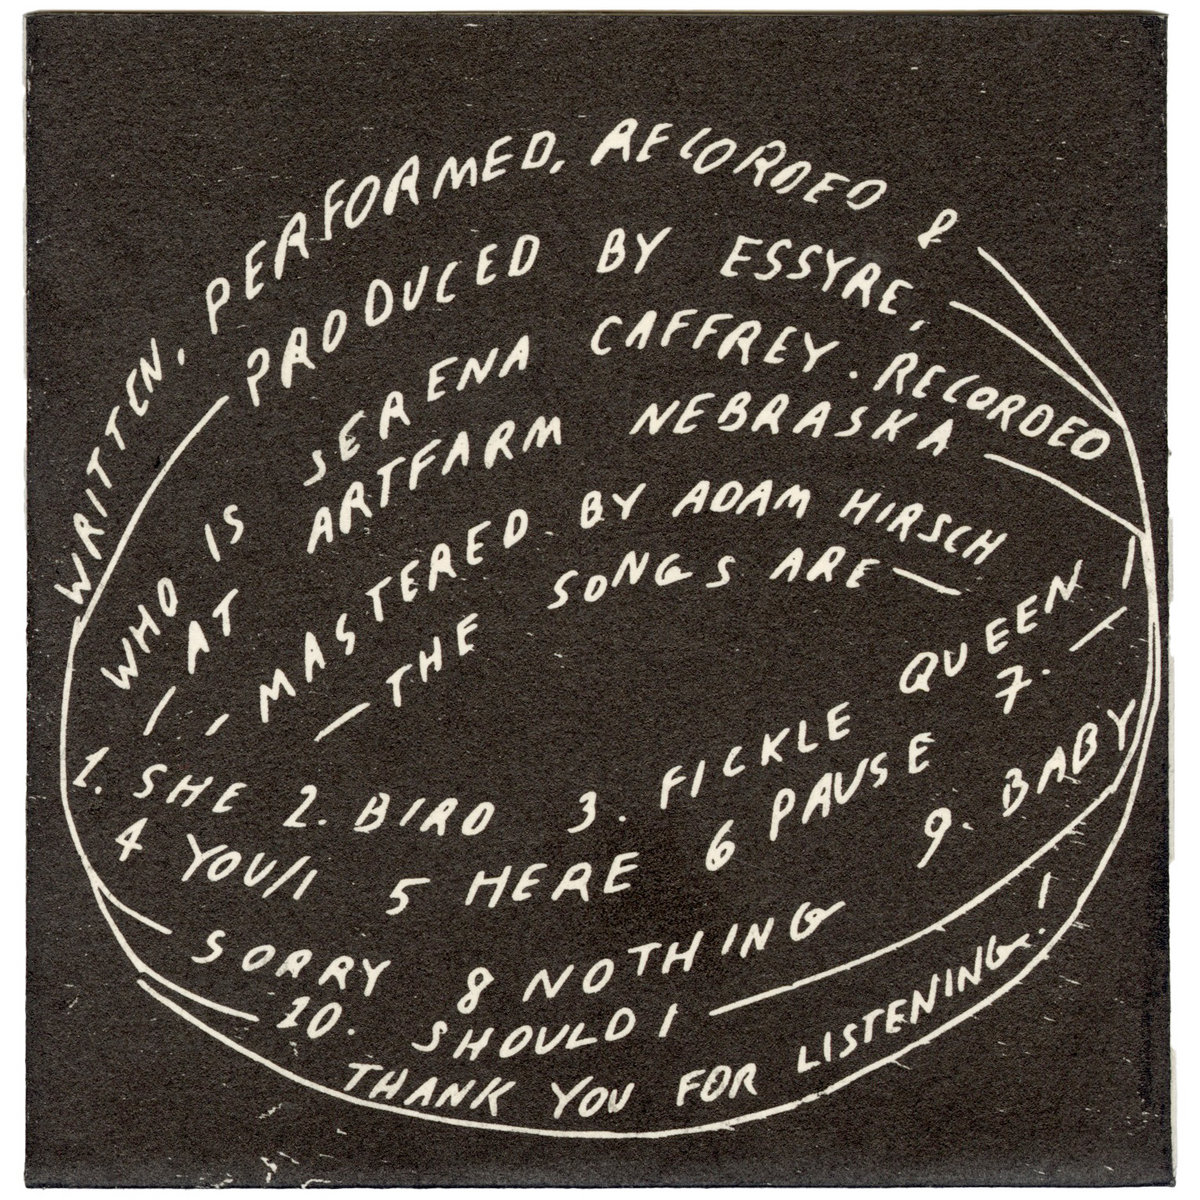 WRITTEN, PERFORMED, RECORDED &
PRODUCED BY ESSYRE,
WHO IS SERENA CAFFREY. RECORDED
AT ARTFARM NEBRASKA
MASTERED BY ADAM HIRSCH
THE SONGS ARE
1. SHE 2. BIRD 3. FICKLE QUEEN
4 YOU/I 5 HERE 6 PAUSE 7.
SORRY 8 NOTHING 9. BABY
10. SHOULD I
THANK YOU FOR LISTENING!